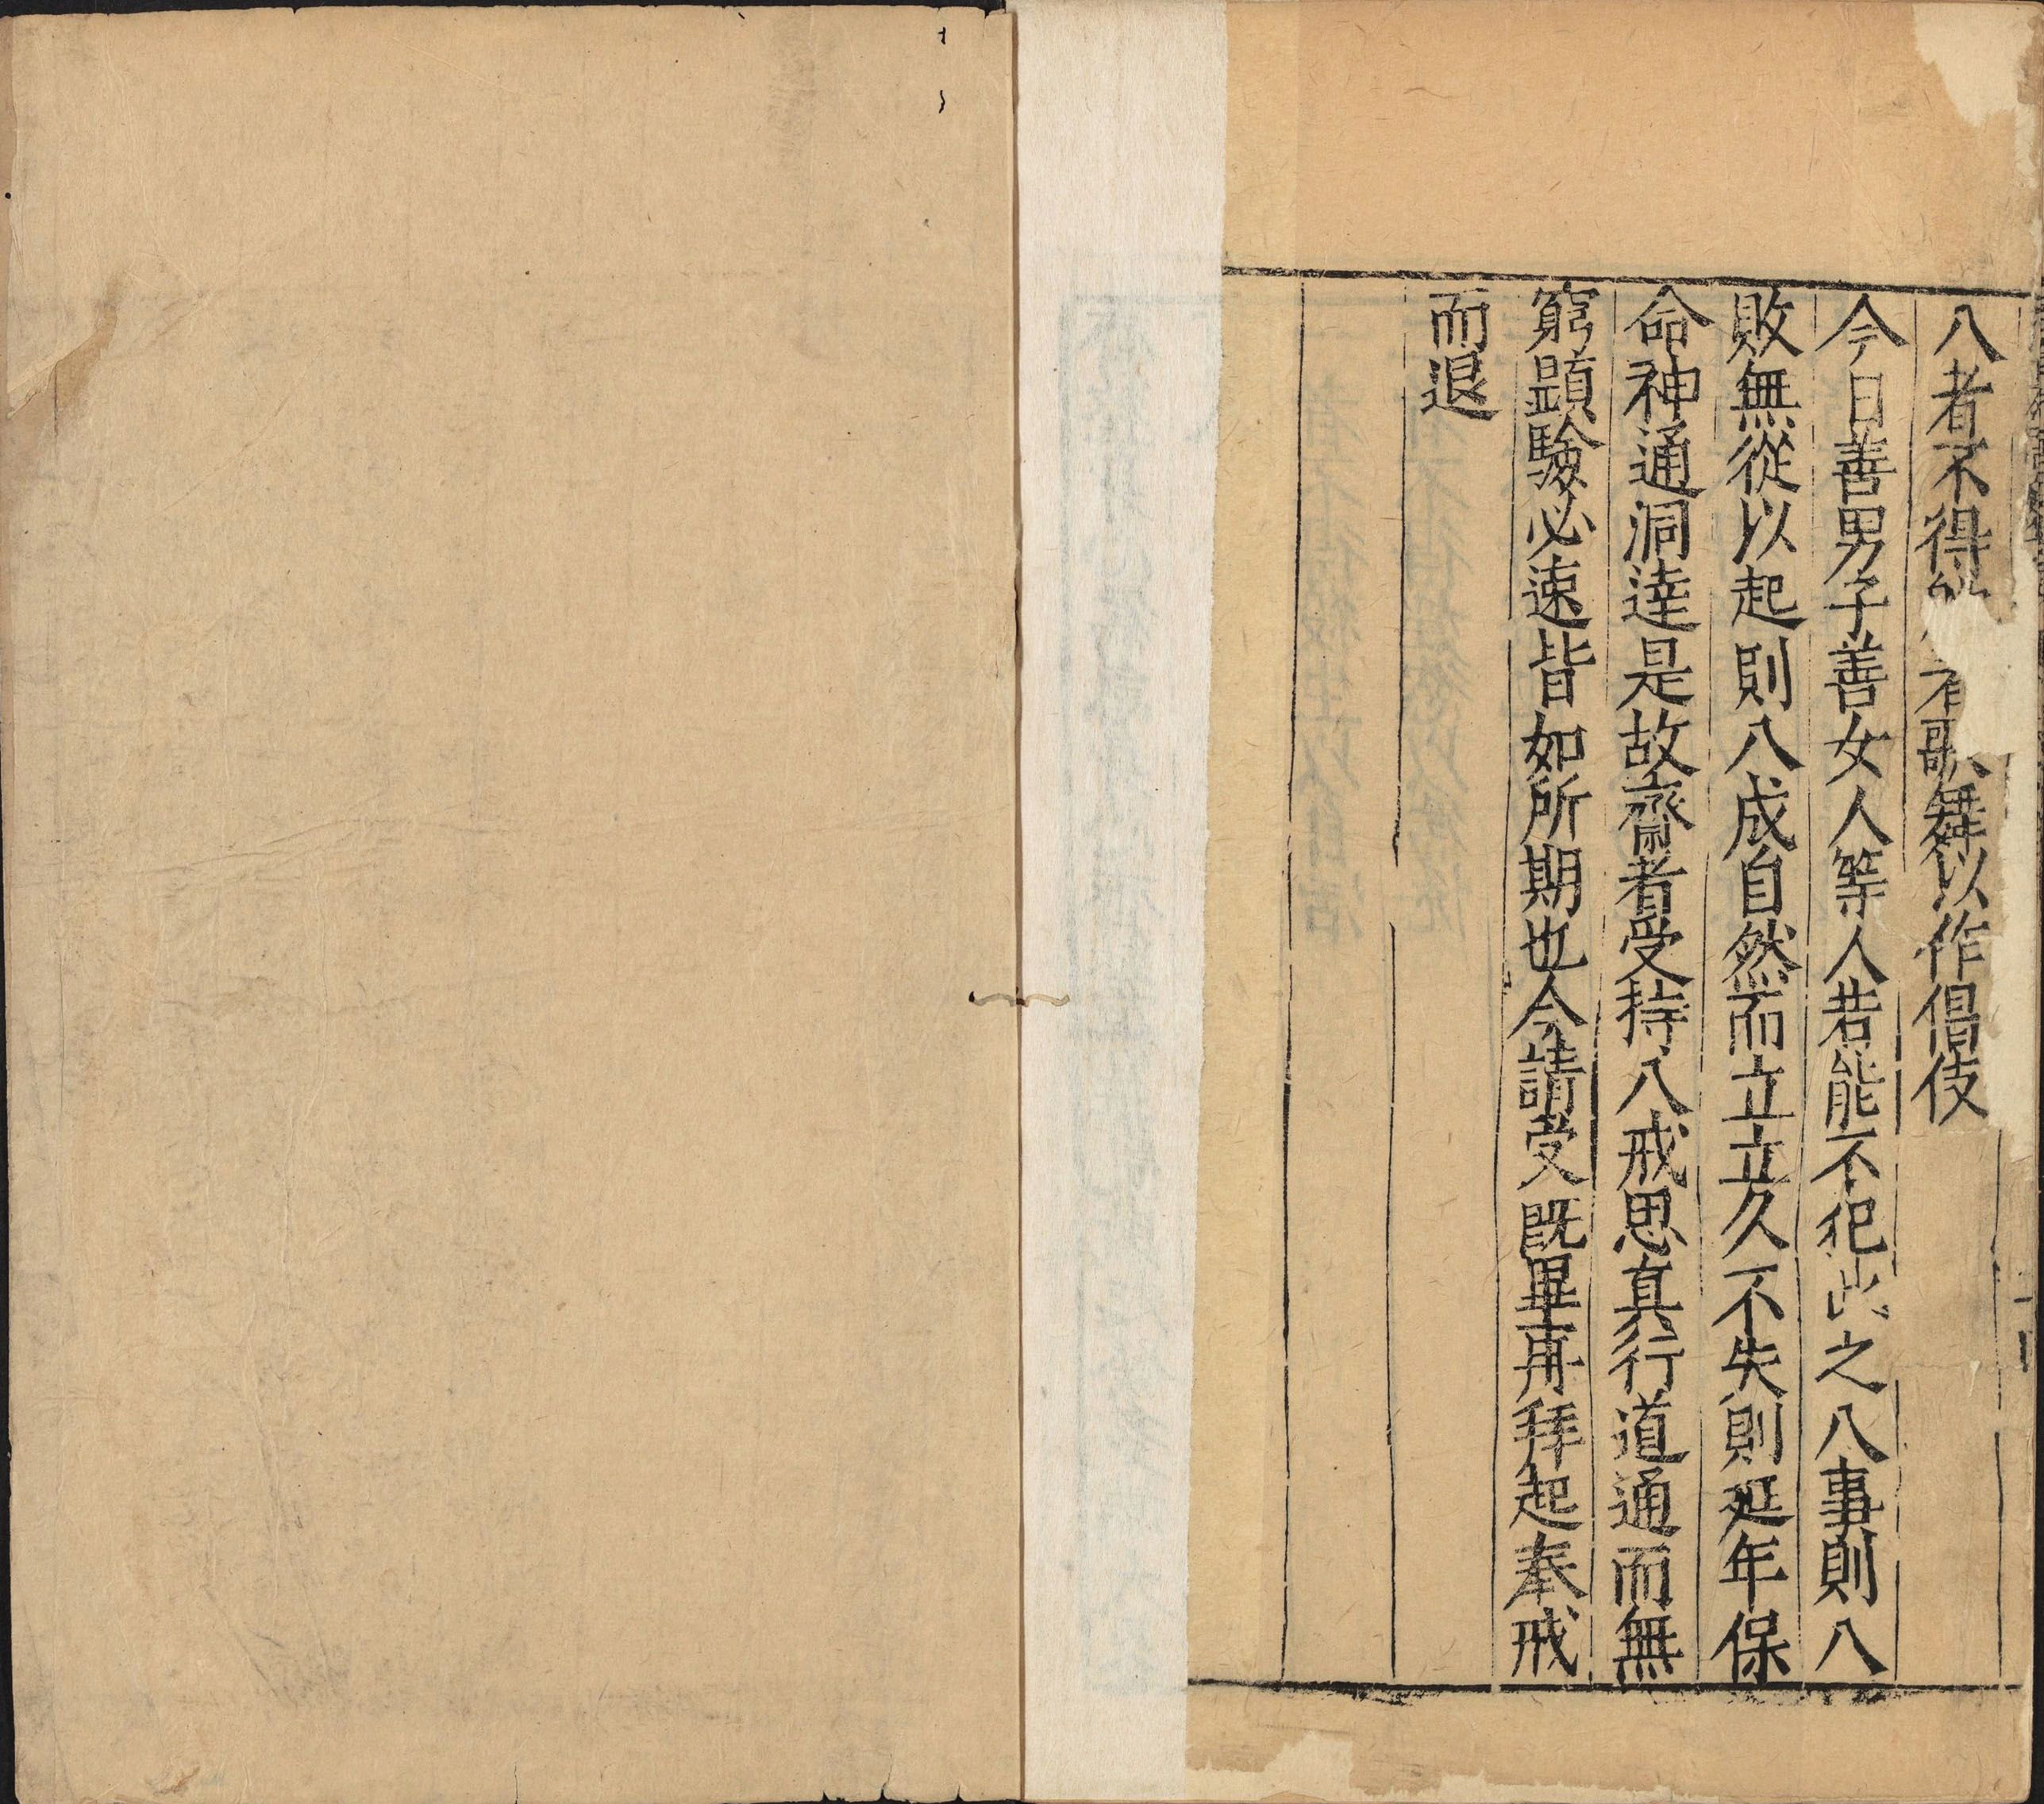 八者不得歌舞以作倡伎
今日善男子善女人等人若能不犯此之八事則八
敗無從以起則八成自然而立立久不失則延年保
命神通洞達是故齋者受持八戒思真行道通而無
窮顯驗必速皆如所期也今請受既畢再拜起奉戒
而退